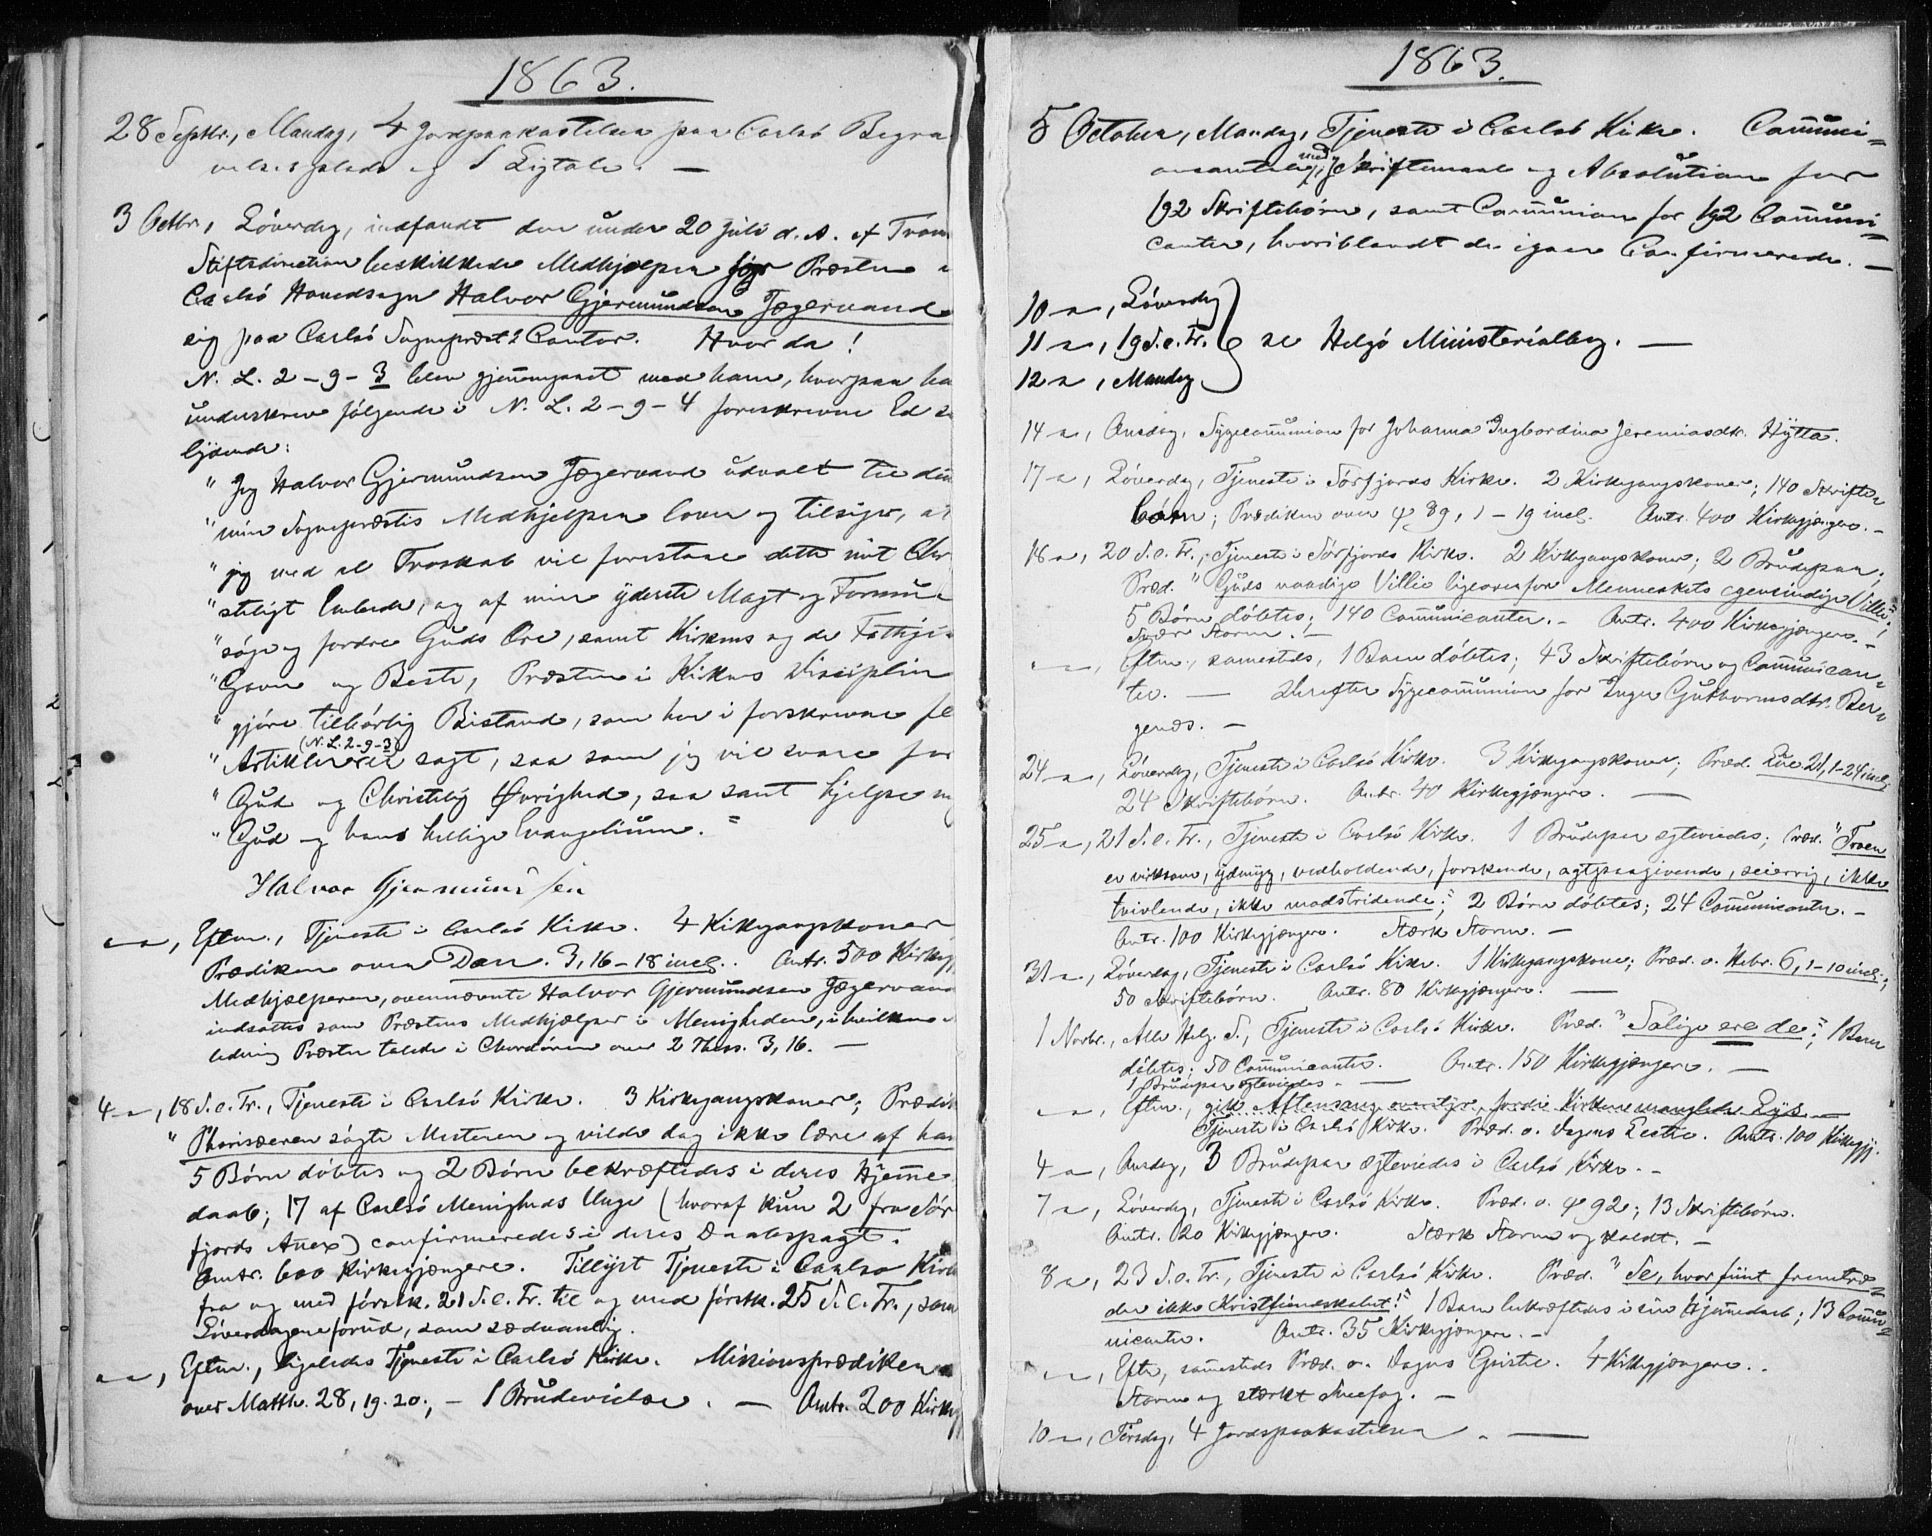 1863.
28 Septbr., Mandag, 4 Jordpaakastelser paa Carlsö Begra
velsesplads og 1 Ligtale. —
3 Octbr., Löverdag, indfandt den under 20 Juli d. A. af Trom
Stiftsdirection beskikkede Medhjælper for Præsten i
Carlsö Hovedsogn Halvor Gjermundsen Jægervand
sig paa Carlsö Sognepræst's Contor. Hvor da!
N. L. 2-9-3 blev gjennemgaaet med ham, hvorpaa ha
underskrev følgende i N. L. 2-9-4 foreskrevne Ed
lydende:
" Jeg Halvor Gjermundsen Jægervand udvalt til den
" min Sognepræstis Medhjelper lover og tilsiger, at
" jeg med al Troskab vil forestaae dette mit Chr
" steligt Embede, og af min yderste Magt og Formu
" söge og fordre Guds Ære, samt Kirkens og de Fattigis
" Gavn og Beste, Præsten i Kirkens Disciplin
" gjöre tilbörlig Bistand, som her i forskrevne
(N. L. 2-9-3)
" Artikler er sagt, saa som jeg vil svare for
" Gud og Christelig Övrighed, saa sant hjelpe mig
" Gud og hans hellige Evangelium."
Halvor Gjermundsen
" — " , Eftm., Tjeneste i Carlsö Kirke. 4 Kirkgangskoner
Prædiken over Dan. 3, 16-18 incl. Antr. 500 Kirkegj
Medhjælperen, ovennævnte Halvor Gjermundsen Jægervand
indsattes som Præstens Medhjælper i Menigheden, i hvilken
ledning Præsten talede i Chordören over 2 Thess. 3, 16. —
4 — " , 18 S. e. Tr., Tjeneste i Carlsö Kirke. 3 Kirkegangskoner; Prædik
" Pharisæeren sögte Mesteren og vilde dog ikke lære af ham
5 Börn döbtes og 2 Börn bekræftedes i deres Hjemme
daab; 17 af Carlsö Menigheds Unge (hvoraf kun 2 fra Sör
fjords Anex) confirmeredes i deres Daabspagt.
Antr. 600 Kirkegjængere. Tillyst Tjeneste i Carlsö Kirke
fra og med förstk. 21 S. e. Tr. til og med förstk. 25 S. e. Tr., som
Löverdagene forud, som sædvanlig.
" — " , Eftm., ligeledes Tjeneste i Carlsö Kirke. Missionsprædiken
over Matth. 28, 19. 20.; — 1 Brudevielse. — Antr. 200 Kirkegj
1863.
5 October, Mandag, Tjeneste i Carlsö Kirke. Communi=
med
onsantale Skriftemaal og Absolution for
192 Skriftebörn, samt Communion for 192 Communi=
canter, hvoriblandt de igaar Confirmerede. —
10 — " , Löverdag
11 — " , 19 S. e. Tr. se Helgö Ministerialbog. —
12 — " , Mandag
14 — " , Onsdag, Sygecommunion for Johanna Ingbordina Jeremiasdtr. Hytta.
17 — " , Löverdag, Tjeneste i Sörfjords Kirke. 2 Kirkegangskoner; 140 Skrifte=
börn; Prædiken over ψ 89, 1-19 incl. Antr. 400 Kirkegjængere. —
18 — " , 20 S. e. Tr., Tjeneste i Sörfjords Kirke. 2 Kirkegangskoner; 2 Brudepar;
Præd. " Guds naadige Villie ligeoverfor Menneskets egensindige Villie";
5 Börn döbtes; 140 Communicanter. — Antr. 400 Kirkegjængere. —
Svær Storm! —
" — " , Eftm., samesteds, 1 Barn döbtes; 43 Skriftebörn og Communican=
ter. — Derefter Sygecommunion for Inger Guthormsdtr. Ber=
genæs. —
24 — " , Löverdag, Tjeneste i Carlsö Kirke. 3 Kirkegangskoner; Præd. Luc. 21, 1-24 incl.;
24 Skriftebörn. Antr. 40 Kirkegjængere. —
25 — " , 21 S. e. Tr., Tjeneste i Carlsö Kirke. 1 Brudepar egtevies; Præd. " Troen
er virksom, ydmyg, vedholdende, forskende, agtpaagivende, seierrig, ikke
tvivlende, ikke modstridende"; 2 Börn döbtes; 24 Communicanter. —
Antr. 100 Kirkegjængere. Stærk Storm. —
31 — " , Löverdag, Tjeneste i Carlsö Kirke. 1 Kirkegangskone; Præd. o. Hebr. 6, 1-10 incl.;
50 Skriftebörn. Antr. 80 Kirkegjængere. —
1 Novbr., Alle Helg. S., Tjeneste i Carlsö Kirke. Præd. " Salige ere de"; 1 Barn
döbtes; 50 Communicanter. Antr. 150 Kirkegjængere. —
1 Brudepar egtevies. —
" — " , Eftm., gik Aftensang overstyr, fordi Kirken manglede Lys. —
Tjeneste i Carlsö Kirke. Præd. o. Dagens Lectie. Antr. 100 Kirkegj.
4 — " , Onsdag, 3 Brudepar egteviedes i Carlsö Kirke. —
7 — " , Löverdag, Tjeneste i Carlsö Kirke. Præd. o. ψ 92; 13 Skriftebörn.
Antr. 20 Kirkegjængere. Stærk Storm og Kaldt. —
8 — " , 23 S. e. Tr., Tjeneste i Carlsö Kirke. Præd. " Se, hvor fiint fremtræ=
der ikke Kristfiendskabet!" 1 Barn bekræftedes i sin Hjemmedaab; 13 Commu=
nicanter. Antr. 35 Kirkegjængere. —
" — " , Eftm., samesteds Præd. o. Dagens Epistel. 4 Kirkegjængere. —
Storm og stærkt Sneefog. —
10 — " , Tirsdag, 4 Jordspaakastelser. —